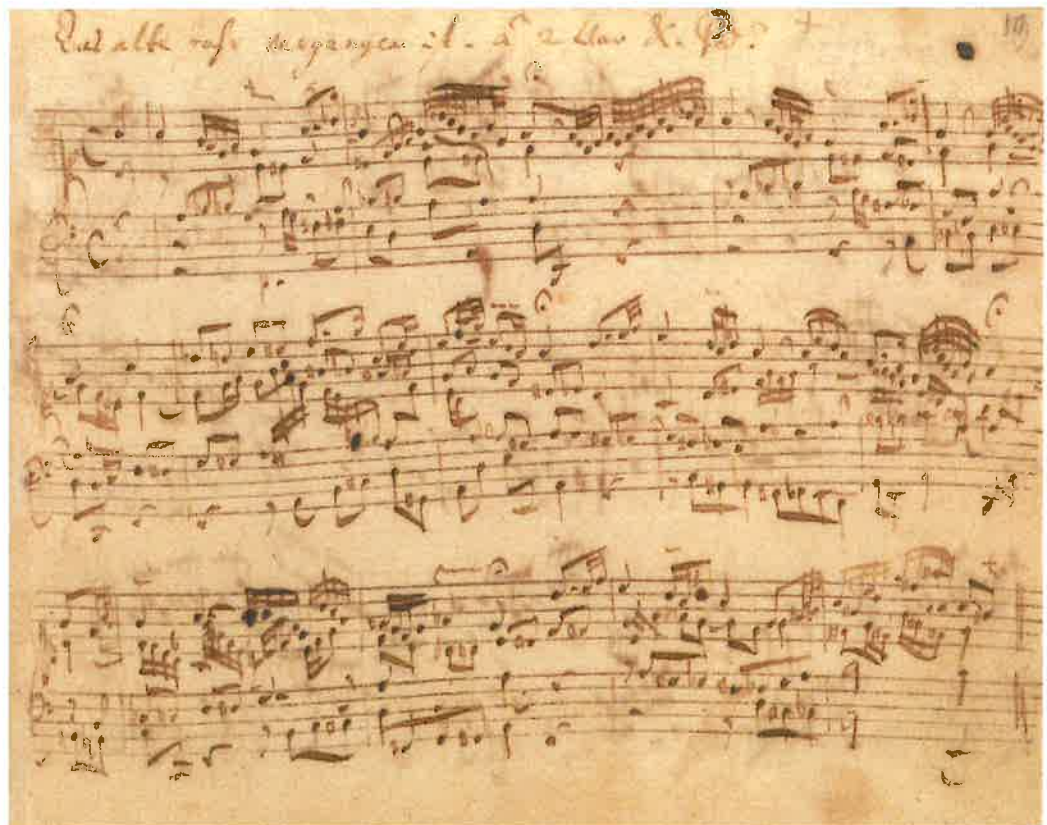 Das alte Jahr vergangen ist. à 2 Clav. & Ped. 19